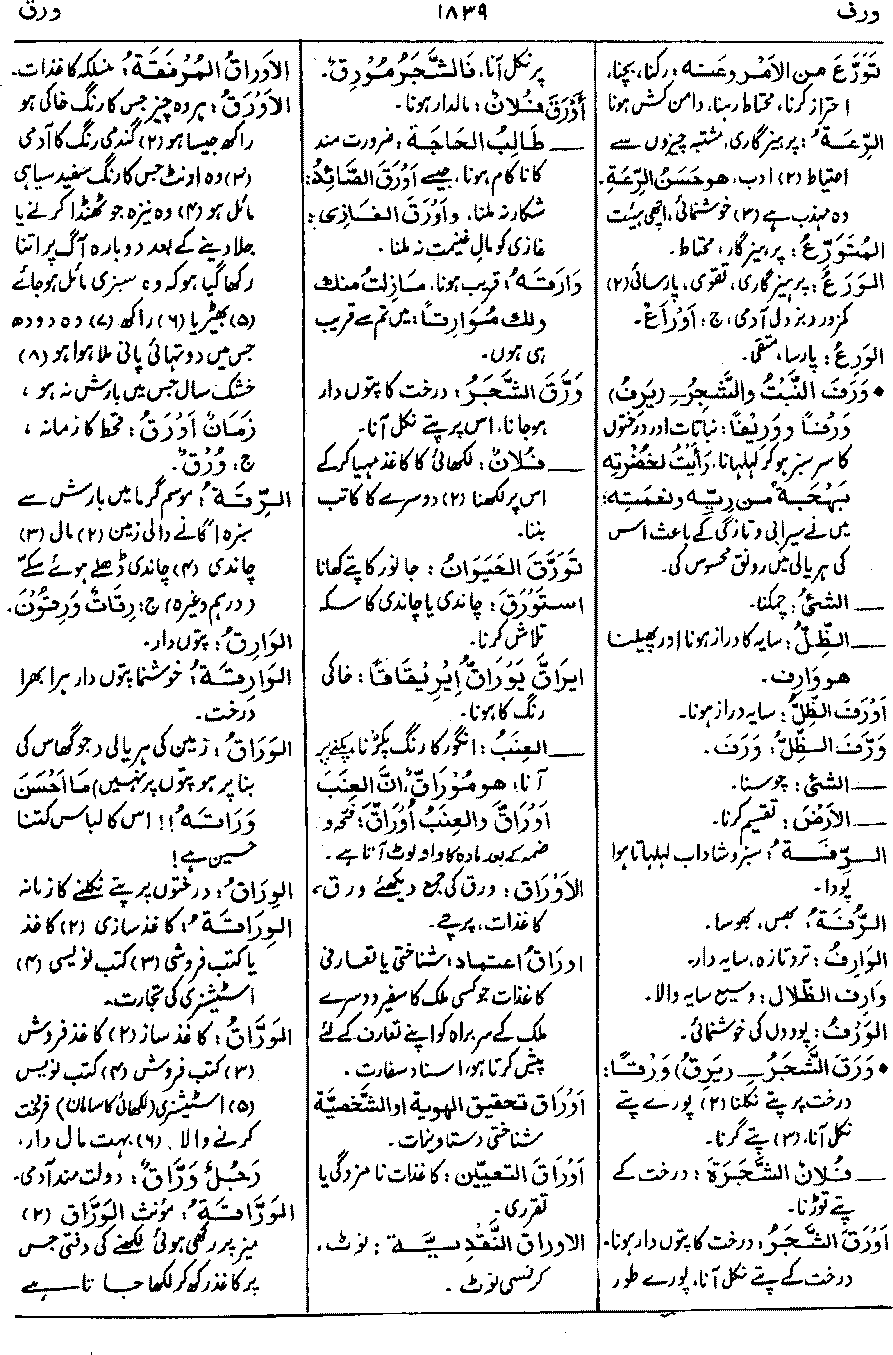 ورف ۱۸۳۹ ورق
تَوَرَّعَ من الأمْرِ وعَنه: رکنا، بچنا،
احتراز کرنا، محتاط رہنا، دامن کش ہونا
الرِّعَةُ: پرہیزگاری، مشتبہ چیزوں سے
احتیاط (۲) ادب، هو حَسَنُ الرِّعَةِ.
وہ مہذب ہے (۳) خوشنمائی، اچھی ہیئت
المُتَوَرِّعُ: پرہیزگار، محتاط۔
الوَرَعُ: پرہیزگاری، تقوی، پارسائی (۲)
کمزور و بزدل آدمی، ج: أَوْرَاعٌ۔
الوَرِعُ: پارسا، متقی۔
• وَرَفَ النَّبْتُ والشَّجرُ ـــِ (يَرِفُ)
وَرْفًا ووَرِيفًا: نباتات اور درختوں
کا سرسبز ہوکر لہلہانا، رَأَيْتُ لخُضْرَتِه
بَهْجَةً من رِيِّه ونَعمتِه:
میں نے سیرابی و تازگی کے باعث اس
کی ہریالی میں رونق محسوس کی۔
ـــ الشئُ: چمکنا۔
ـــ الظِّلُّ: سایہ کا دراز ہونا اور پھیلنا
هو وَارِف۔
أَوْرَفَ الظِّلُّ: سایہ دراز ہونا۔
وَرَّفَ الظِّلُّ: وَرَفَ۔
ـــ الشئَ: چوسنا۔
ـــ الأرْضَ: تقسیم کرنا۔
الرِّفَةُ: سبز و شاداب لہلہاتا ہوا
پودا۔
الرُّفَةُ: بھس، بھوسا۔
الوَارِفُ: تر و تازہ، سایہ دار۔
وَارِف الظِّلال: وسیع سایہ والا۔
الوَرْفُ: پودوں کی خوشنمائی۔
• وَرَقَ الشَّجَرُ ـــِ (يَرِقُ) وَرْقًا:
درخت پر پتے نکلنا (۲) پورے پتے
نکل آنا، (۳) پتے گرنا۔
ـــ فُلانٌ الشَّجَرَةَ: درخت کے
پتے توڑنا۔
أَوْرَقَ الشَّجَرُ: درخت کا پتوں دار ہونا۔
درخت کے پتے نکل آنا، پورے طور
پر نکل آنا، فَالشَّجَرُ مُورِقٌ۔
أَوْرَقَ فُلانٌ: مالدار ہونا۔
ـــ طَالِبُ الحَاجَة: ضرورت مند
کا ناکام ہونا، جیسے أَوْرَقَ الصَّائِدُ:
شکار نہ ملنا، وأَوْرَقَ الغَازِي:
غازی کو مالِ غنیمت نہ ملنا۔
وَارَقَهُ: قریب ہونا، مَازِلتُ منك
ولك مُوَارِقًا: میں تم سے قریب
ہی ہوں۔
وَرَّقَ الشَّجَرُ: درخت کا پتوں دار
ہوجانا، اس پر پتے نکل آنا۔
ـــ فُلانٌ: لکھائی کا کاغذ مہیا کرکے
اس پر لکھنا (۲) دوسرے کا کاتب
بننا۔
تَوَرَّقَ الحَيَوَانُ: جانور کا پتے کھانا
اسْتَوْرَقَ: چاندی یا چاندی کا سکہ
تلاش کرنا۔
ايرَاقَّ يَوْرَاقُّ إيرِيقَاقًا: خاکی
رنگ کا ہونا۔
ـــ العِنَبُ: انگور کا رنگ پکڑنا، پکنے پر
آنا، هو مُوْرَاقٌّ، انَّ العِنَبَ
أوْرَاقَّ والعِنَبُ أُوْرَاقَّ: فتحہ و
ضمہ کے بعد مادہ کا واو لوٹ آتا ہے۔
الأوْرَاق: ورق کی جمع دیکھئے ورق،
کاغذات، پرچے۔
اورَاقُ اعتماد: شناختی یا تعارفی
کاغذات جو کسی ملک کا سفیر دوسرے
ملک کے سربراہ کو اپنے تعارف کے لئے
پیش کرتا ہو، اسنادِ سفارت۔
أوْرَاق تحقيق الهوية او الشَّخصِيَّة
شناختی دستاویزات۔
أوْرَاقَ التعيين: کاغذات نامزدگی یا
تقرری۔
الاوراق النَّقْدِيَّة: نوٹ،
کرنسی نوٹ۔
الأوْرَاقُ المُرْفَقَة: منسلکہ کاغذات۔
الأوْرَقُ: ہر وہ چیز جس کا رنگ خاکی ہو
راکھ جیسا ہو (۲) گندمی رنگ کا آدمی
(۳) وہ اونٹ جس کا رنگ سفید سیاہی
مائل ہو (۴) وہ نیزہ جو ٹھنڈا کرنے یا
جلا دینے کے بعد دوبارہ آگ پر اتنا
رکھا گیا ہو کہ وہ سبزی مائل ہوجائے
(۵) بھیڑیا (۶) راکھ (۷) وہ دودھ
جس میں دو تہائی پانی ملا ہوا ہو (۸)
خشک سال جس میں بارش نہ ہو،
زَمَانٌ أوْرَقُ: قحط کا زمانہ،
ج: وُرْقٌ۔
الرِّقَةُ: موسم گرما میں بارش سے
سبزہ اگانے والی زمین (۲) مال (۳)
چاندی (۴) چاندی ڈھلے ہوئے سکے
(درہم وغیرہ) ج: رِقَاتٌ وَرِقُونَ۔
الوَارِقُ: پتوں دار۔
الوَارِقَةُ: خوشنما پتوں دار ہرا بھرا
درخت۔
الوَرَاقُ: زمین کی ہریالی (جو گھاس کی
بنا پر ہو پتوں پر نہیں) مَا أحْسَنَ
وَرَاقَهُ!! اس کا لباس کتنا
حسین ہے!
الوِرَاقُ: درختوں پر پتے نکلنے کا زمانہ
الوِرَاقَةُ: کاغذ سازی (۲) کاغذ
یا کتب فروشی (۳) کتب نویسی (۴)
اسٹیشنری کی تجارت۔
الوَرَّاقُ: کاغذ ساز (۲) کاغذ فروش
(۳) کتب فروش (۴) کتب نویس
(۵) اسٹیشنری (لکھائی کا سامان) فروخت
کرنے والا۔ (۶) بہت مال دار،
رَجُلٌ وَرَّاقٌ: دولت مند آدمی۔
الوَرَّاقَةُ: مؤنث الوَرَّاق (۲)
میز پر رکھی ہوئی لکھنے کی دفتی جس
پر کاغذ رکھ کر لکھا جاتا ہے